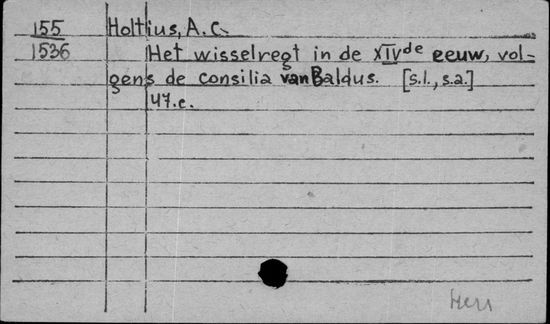 155 Holtius, A.C.
1536 Het wisselregt in de XIVde eeuw, vol-
gens de consilia van Baldus. [s.l., s.a.]
47.e.